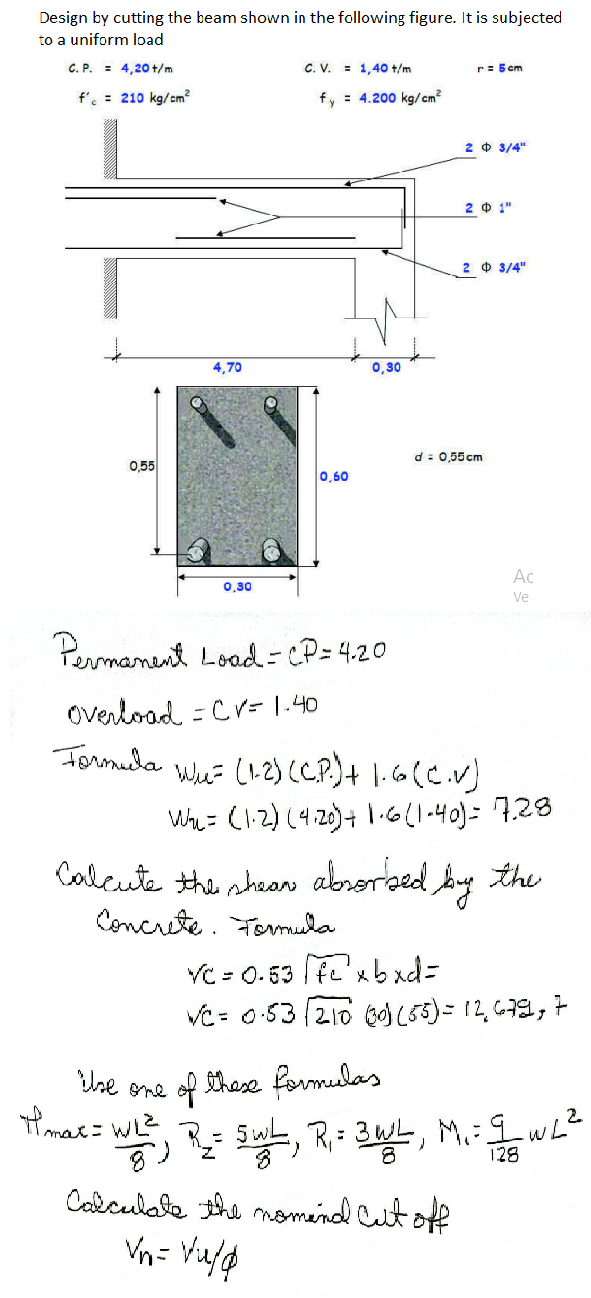 Design by cutting the beam shown in the following figure. It is subjected
to a uniform load
C. P. = 4,20 t/m C. V. = 1,40 t/m r = 5 cm
f'c = 210 kg/cm² fy = 4.200 kg/cm²
2 Φ 3/4"
2 Φ 1"
2 Φ 3/4"
4,70 0,30
0,55
0,60
d = 0,55cm
0,30
Ac
Ve
Permanent Load = CP = 4.20
overload = CV = 1.40
Formula Wu = (1.2) (C.P.) + 1.6 (C.V)
Wu = (1.2) (4.20) + 1.6 (1.40) = 7.28
Calcute the shear absorbed by the
Concrete. Formula
VC = 0.53 √fc x b x d =
VC = 0.53 √210 (30) (55) = 12,672,7
Use one of these formulas
Mmax = WL²/8, R₂ = 5WL/8, R₁ = 3WL/8, M₁ = 9/128 WL²
Calculate the nominal Cut off
Vn = Vu/φ